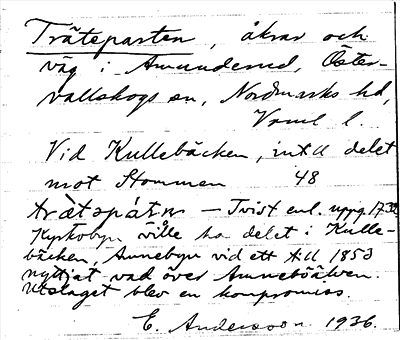 Träteparten, åkrar och
väg i Amunderud, Öster-
vallskogs sn, Nordmarks hd,
Vrml l.
Vid Kullebäcken, intill delet
mot Stommen 48
– Tvist enl. uppg. 1732
Kyrkobyn ville ha delet i Kulle-
bäcken, Annebyn vid ett till 1853
nyttjat vad över
Utslaget blev en kompromiss.
E. Andersson 1936.